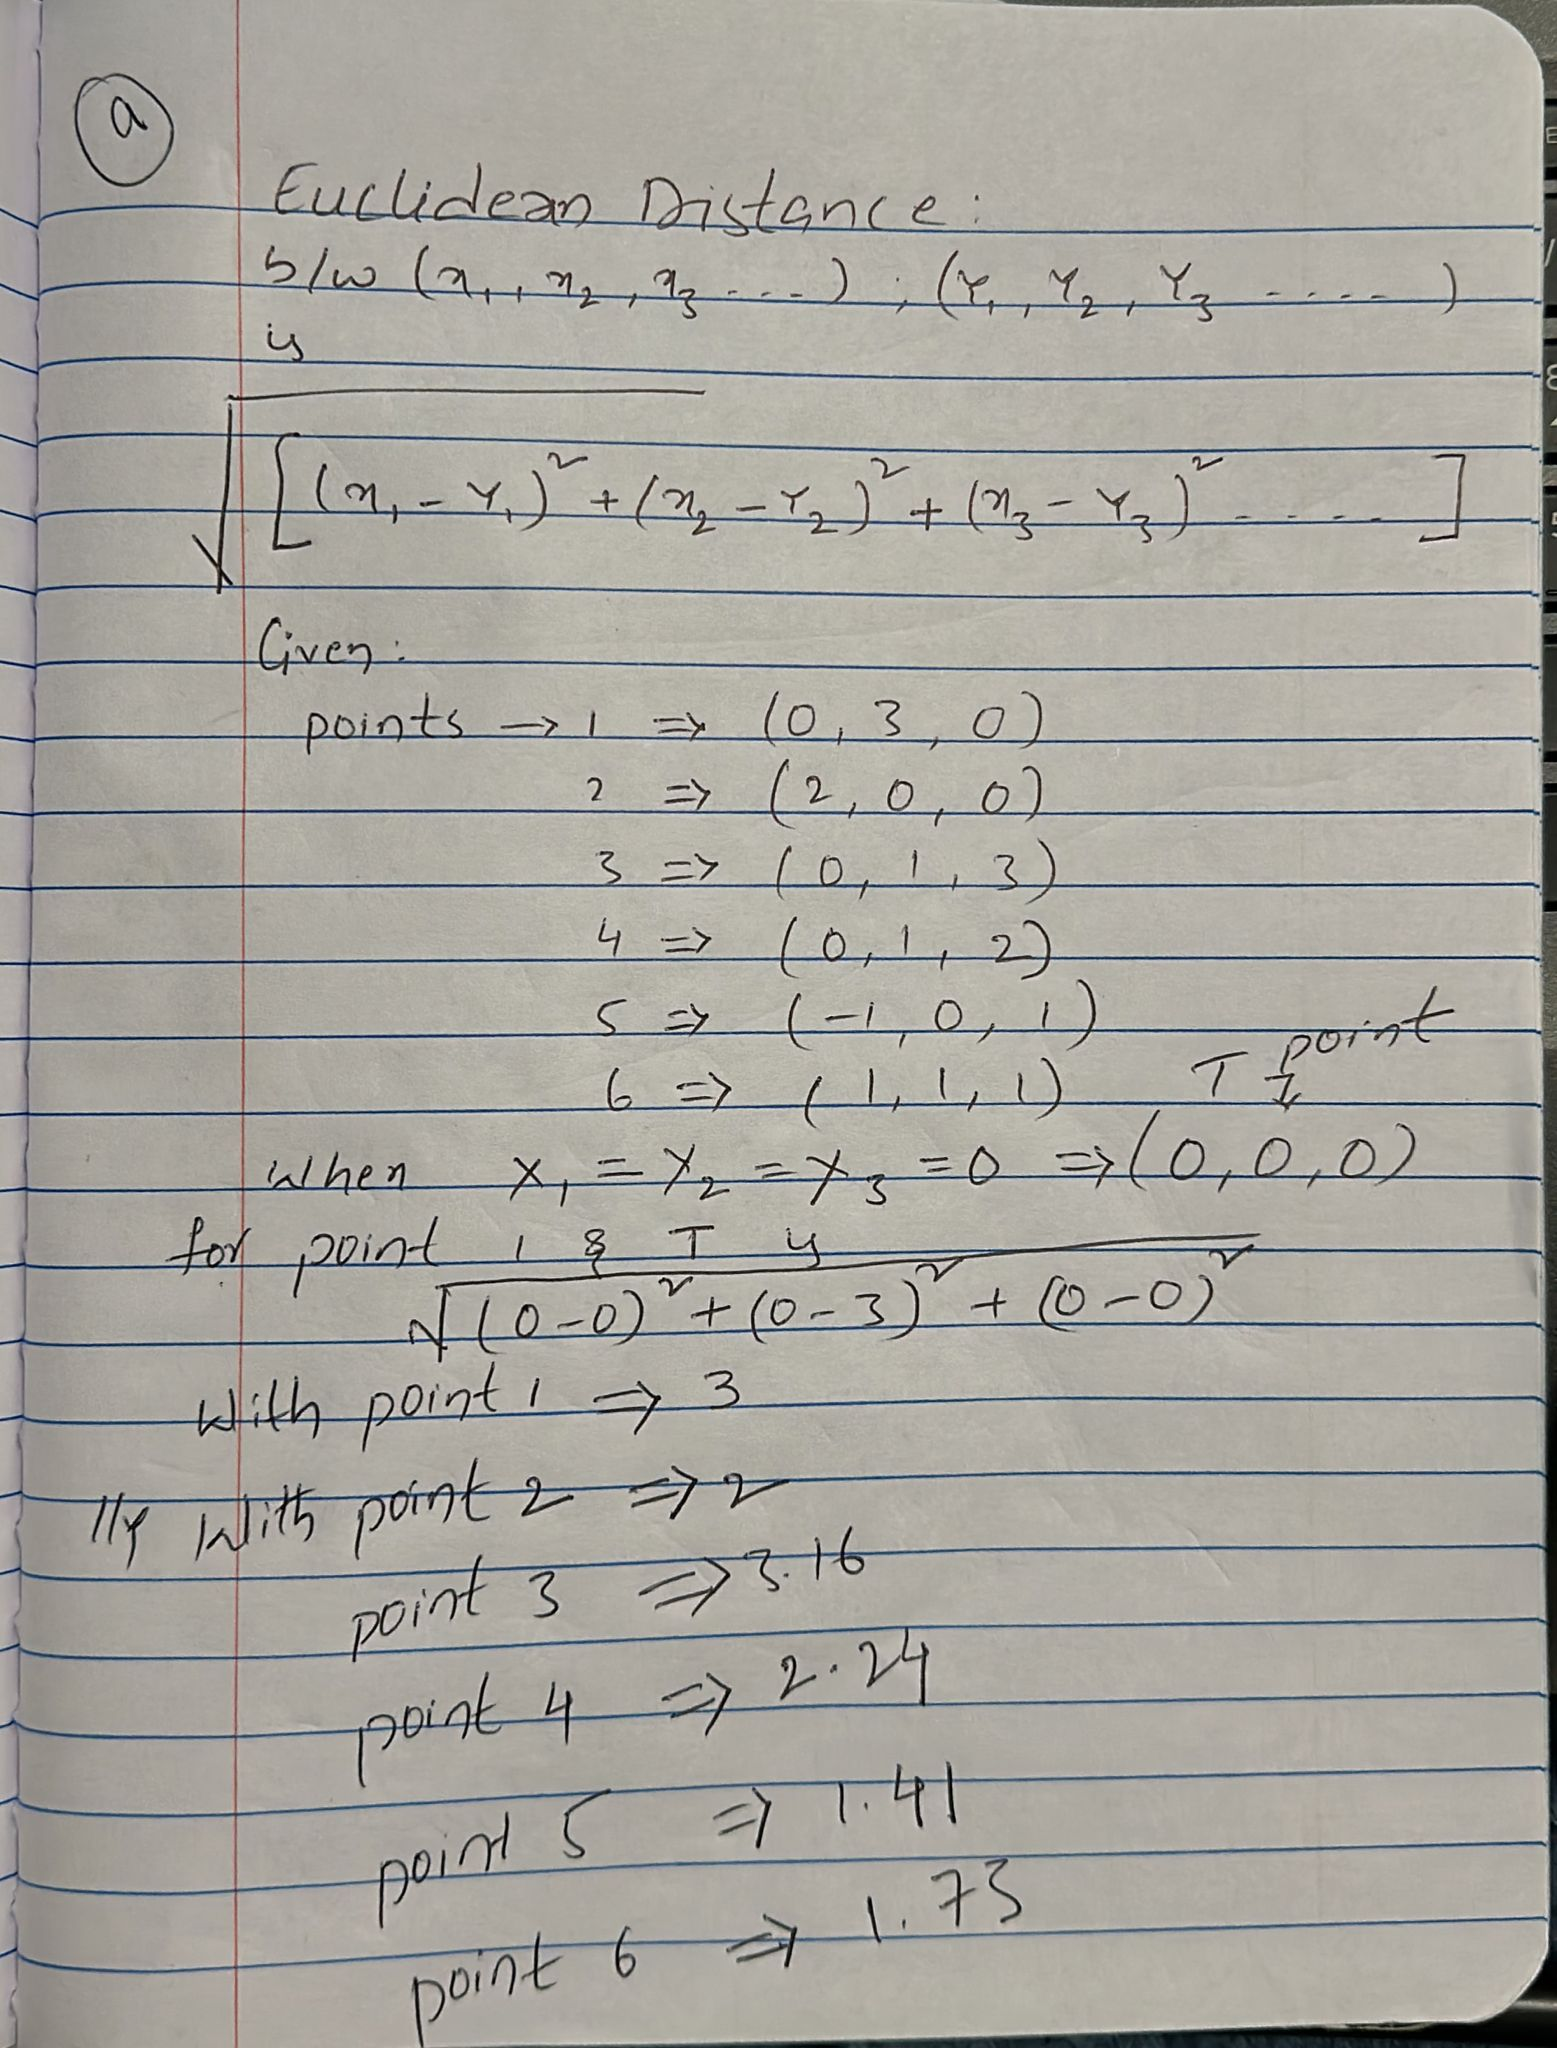 a
Euclidean Distance:
b/w (x₁, x₂, x₃ ---), (Y₁, Y₂, Y₃ ----)
is
√[(x₁ - Y₁)² + (x₂ - Y₂)² + (x₃ - Y₃)² ----]
Given:
points → 1 ⇒ (0, 3, 0)
2 ⇒ (2, 0, 0)
3 ⇒ (0, 1, 3)
4 ⇒ (0, 1, 2)
5 ⇒ (-1, 0, 1)
6 ⇒ (1, 1, 1) T point
↓
When X₁ = X₂ = X₃ = 0 ⇒ (0, 0, 0)
for point 1 & T is
√(0-0)² + (0-3)² + (0-0)²
With point 1 ⇒ 3
llly With point 2 ⇒ 2
point 3 ⇒ 3.16
point 4 ⇒ 2.24
point 5 ⇒ 1.41
point 6 ⇒ 1.73